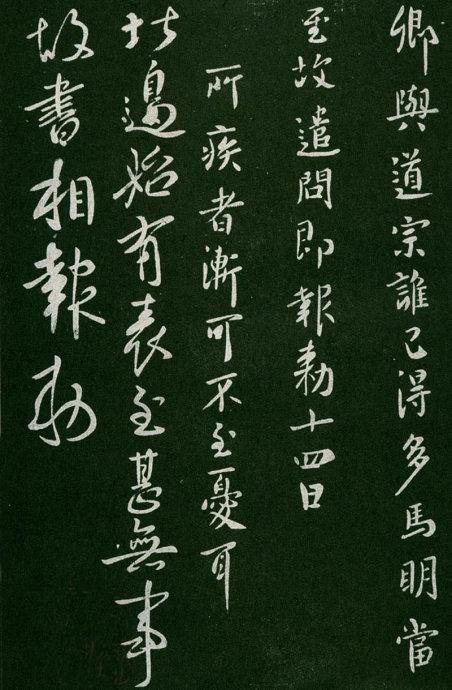 卿與道宗誰已得多馬明當
至故遣問即報勅十四日
所疾者漸可不至憂耳
北邊始有表至甚無事
故書相報勅